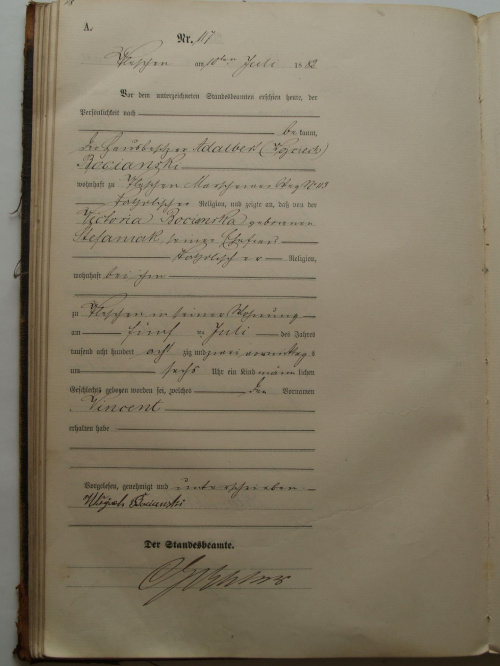 A.
Nr. 117
Pleschen am 10ten Juli 1882
Vor dem unterzeichneten Standesbeamten erschien heute, der
Persönlichkeit nach
bekannt,
der Hausbesitzer Adalbert (Wojciech)
Bocianski
wohnhaft zu Pleschen No 113
katholischer Religion, und zeigte an, daß von der
Victoria Bocianska geborenen
Stefaniak seiner Ehefrau
katholischer Religion,
wohnhaft bei ihm
zu Pleschen in seiner Wohnung
am fünf ten Juli des Jahres
tausend acht hundert achtzig und zwei vormittags
um sechs Uhr ein Kind männlichen
Geschlechts geboren worden sei, welches den Vornamen
Vincent
erhalten habe
Vorgelesen, genehmigt und unterschrieben
Bocianski
Der Standesbeamte.